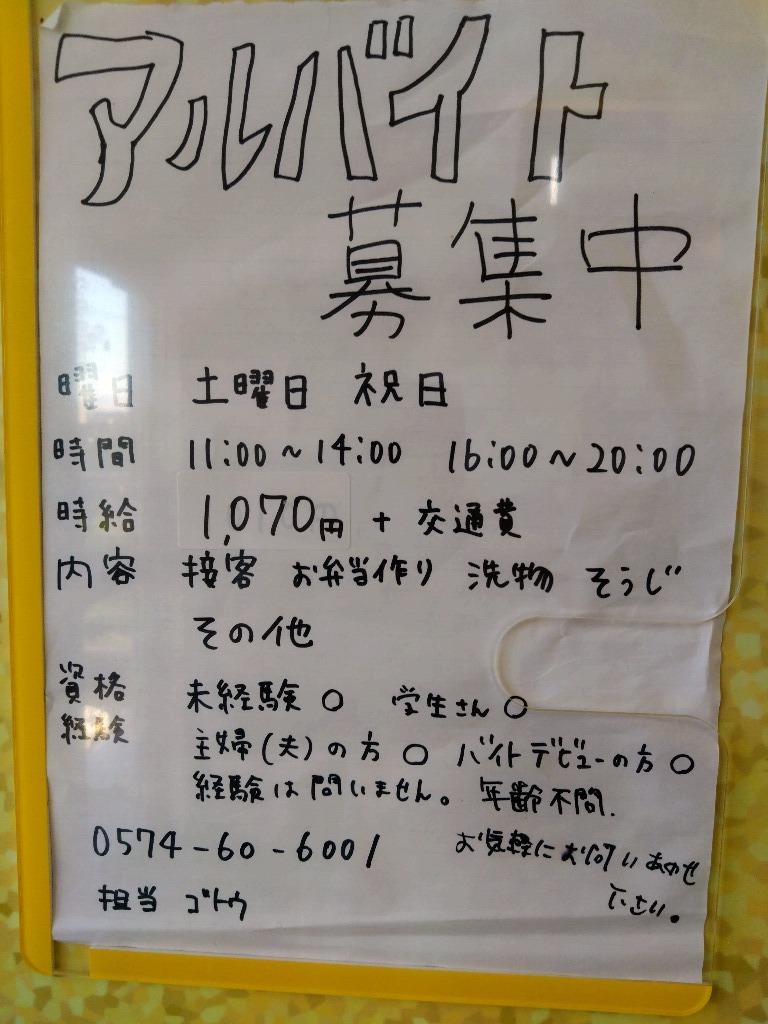 アルバイト
募集中
曜日 土曜日 祝日
時間 11:00~14:00 16:00~20:00
時給 1,070円 + 交通費
内容 接客 お弁当作り 洗物 そうじ
その他
資格 未経験 ○ 学生さん ○
経験 主婦(夫)の方 ○ バイトデビューの方 ○
経験は問いません。 年齢不問.
0574-60-6001 お気軽にお問いあわせ
下さい。
担当 ゴトウ